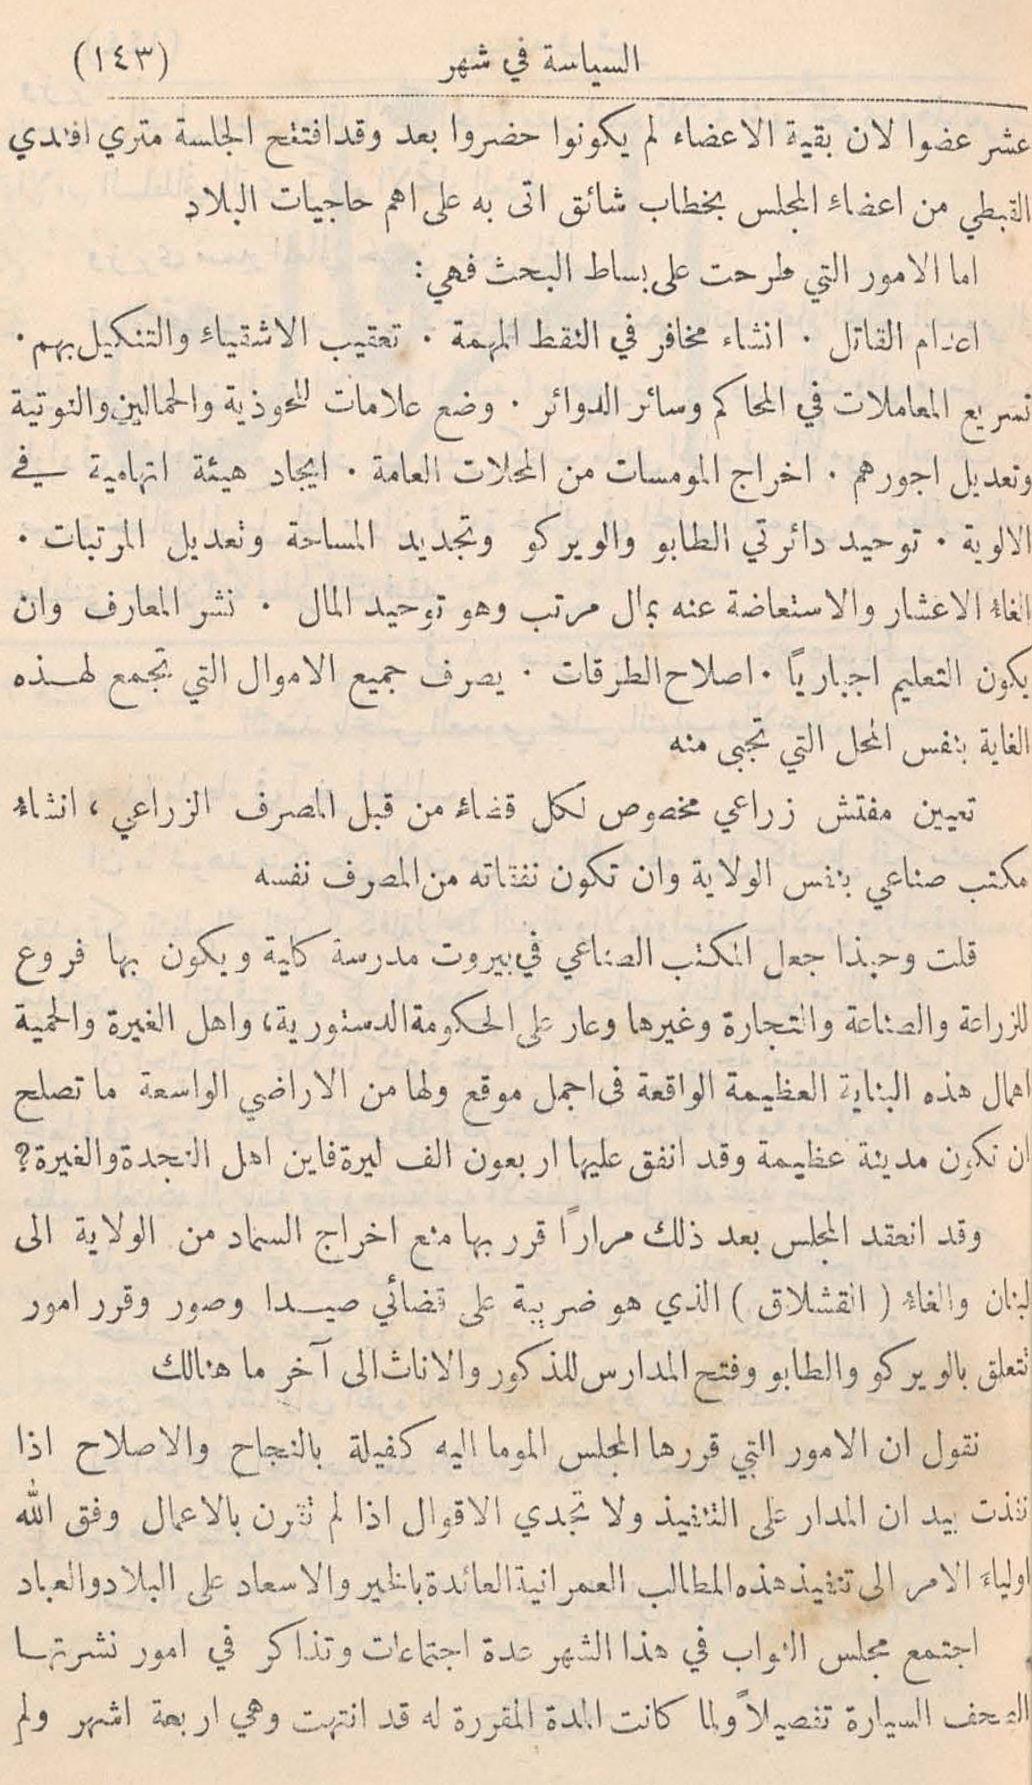 السياسة في شهر (١٤٣)
عشر عضوا لان بقية الاعضاء لم يكونوا حضروا بعد وقد افتتح الجلسة متري افندي
القبطي من اعضاء المجلس بخطاب شائق اتى به على اهم حاجيات البلاد
اما الامور التي طرحت على بساط البحث فهي :
اعدام القاتل ٠ انشاء مخافر في النقط المهمة ٠ تعقيب الاشقياء والتنكيل بهم ٠
تسريع المعاملات في المحاكم وسائر الدوائر ٠ وضع علامات للحوذية والحمالين والنوتية
وتعديل اجورهم ٠ اخراج المومسات من المحلات العامة ٠ ايجاد هيئة اتهامية في
الالوية ٠ توحيد دائرتي الطابو والويركو وتجديد المساحة وتعديل المرتبات ٠
الغاء الاعشار والاستعاضة عنه بمال مرتب وهو توحيد المال ٠ نشر المعارف وان
يكون التعليم اجباريًا ٠ اصلاح الطرقات ٠ يصرف جميع الاموال التي تجمع لهذه
الغاية بنفس المحل التي تجبى منه
تعيين مفتش زراعي مخصوص لكل قضاء من قبل المصرف الزراعي ، انشاء
مكتب صناعي بنفس الولاية وان تكون نفقاته من المصرف نفسه
قلت وحبذا جعل المكتب الصناعي في بيروت مدرسة كلية ويكون بها فروع
للزراعة والصناعة والتجارة وغيرها وعار على الحكومة الدستورية، واهل الغيرة والحمية
اهمال هذه البناية العظيمة الواقعة في اجمل موقع ولها من الاراضي الواسعة ما تصلح
ان تكون مدينة عظيمة وقد انفق عليها اربعون الف ليرة فاين اهل النجدة والغيرة ؟
وقد انعقد المجلس بعد ذلك مرارًا قرر بها منع اخراج السماد من الولاية الى
لبنان والغاء ( القشلاق ) الذي هو ضريبة على قضائي صيدا وصور وقرر امور
تتعلق بالويركو والطابو وفتح المدارس للذكور والاناث الى آخر ما هنالك
نقول ان الامور التي قررها المجلس الموما اليه كفيلة بالنجاح والاصلاح اذا
نفذت بيد ان المدار على التنفيذ ولا تجدي الاقوال اذا لم تقرن بالاعمال وفق الله
اولياء الامر الى تنفيذ هذه المطالب العمرانية العائدة بالخير والاسعاد على البلاد والعباد
اجتمع مجلس النواب في هذا الشهر عدة اجتماعات وتذاكر في امور نشرتها
الصحف السيارة تفصيلاً ولما كانت المدة المقررة له قد انتهت وهي اربعة اشهر ولم